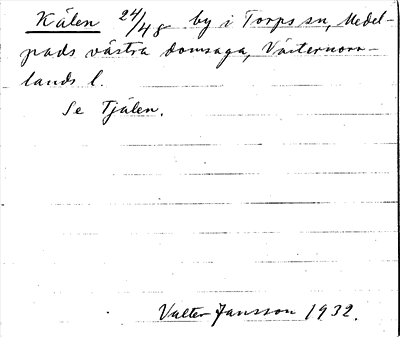 Kälen 24/48 by i Torps sn, Medel-
pads västra domsaga, Västernorr-
lands l.
Se Tjälen.
Valter Jansson 1932.